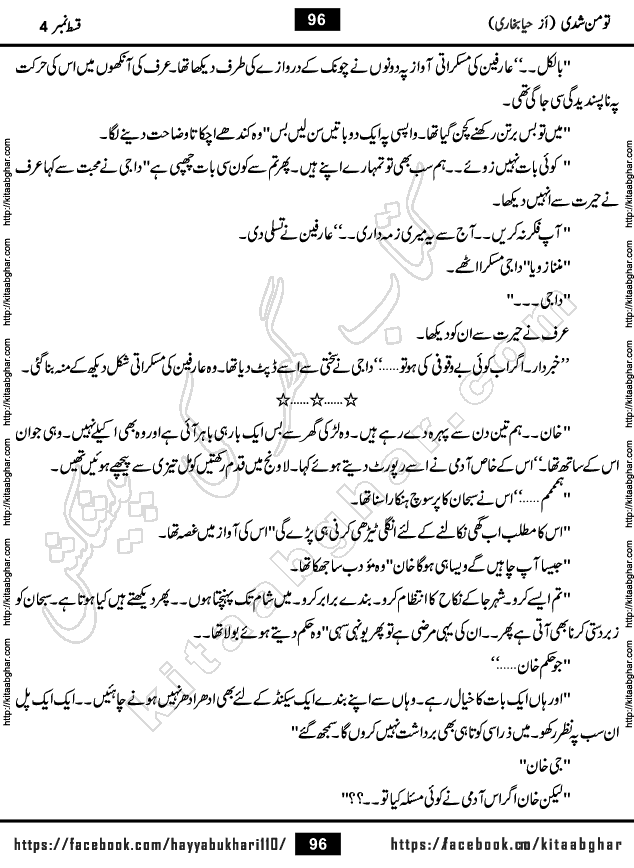 تو من شدی (از حیا بخاری) 96 قسط نمبر 4
"بالکل۔۔" عارفین کی مسکراتی آواز پہ دونوں نے چونک کے دروازے کی طرف دیکھا تھا۔ عرف کی آنکھوں میں اس کی حرکت
پہ ناپسندیدگی سی جاگی تھی۔
"میں تو بس برتن رکھنے کچن گیا تھا۔ واپسی پہ ایک دو باتیں سن لیں بس" وہ کندھے اچکاتا وضاحت دینے لگا۔
"کوئی بات نہیں زوئے۔۔ ہم سب بھی تو تمہارے اپنے ہیں۔ پھر تم سے کون سی بات چھپی ہے" داجی نے محبت سے کہا عرف
نے حیرت سے انہیں دیکھا۔
"آپ فکر نہ کریں۔۔ آج سے یہ میری زمہ داری۔۔" عارفین نے تسلی دی۔
"مننا زویا" داجی مسکرا اٹھے۔
"داجی۔۔۔"
عرف نے حیرت سے ان کو دیکھا۔
"خبردار۔ اگر اب کوئی بے وقوفی کی ہو تو......" داجی نے سختی سے اسے ڈپٹ دیا تھا۔ وہ عارفین کی مسکراتی شکل دیکھ کے منہ بنا گئی۔
☆......☆......☆
"خان۔۔ ہم تین دن سے پہرہ دے رہے ہیں۔ وہ لڑکی گھر سے بس ایک بار ہی باہر آئی ہے اور وہ بھی اکیلے نہیں۔ وہی جوان
اس کے ساتھ تھا۔" اس کے خاص آدمی نے اسے رپورٹ دیتے ہوئے کہا۔ لاونج میں قدم رکھتیں کومل تیزی سے پیچھے ہوئیں تھیں۔
"ہممم......" اس نے سبحان کا پر سوچ ہنکارا سنا تھا۔
"اس کا مطلب اب گھی نکالنے کے لئے انگلی ٹیڑھی کرنی ہی پڑے گی" اس کی آواز میں غصہ تھا۔
"جیسا آپ چاہیں گے ویسا ہی ہوگا خان" وہ مؤدب سا جھکا تھا۔
"تم ایسے کرو۔ شہر جا کے نکاح کا انتظام کرو۔ بندے برابر کرو۔ میں شام تک پہنچتا ہوں۔۔ پھر دیکھتے ہیں کیا ہوتا ہے۔ سبحان کو
زبردستی کرنا بھی آتی ہے پھر۔۔ ان کی یہی مرضی ہے تو پھر یونہی سہی" وہ حکم دیتے ہوئے بولا تھا۔۔
"جو حکم خان......"
"اور ہاں ایک بات کا خیال رہے۔ وہاں سے اپنے بندے ایک سیکنڈ کے لئے بھی ادھر ادھر نہیں ہونے چاہئیں۔۔ ایک ایک پل
ان سب پہ نظر رکھو۔ میں ذرا سی کوتاہی بھی برداشت نہیں کروں گا۔ سمجھ گئے"
"جی خان"
"لیکن خان اگر اس آدمی نے کوئی مسئلہ کیا تو۔۔؟؟"
https://facebook.com/hayyabukhari110/ 96 https://facebook.com/kitaabghar
http://kitaabghar.com http://kitaabghar.com http://kitaabghar.com http://kitaabghar.com http://kitaabghar.com http://kitaabghar.com
http://kitaabghar.com http://kitaabghar.com http://kitaabghar.com http://kitaabghar.com http://kitaabghar.com http://kitaabghar.com
کتاب گھر کی پیشکش
kitaabghar.com